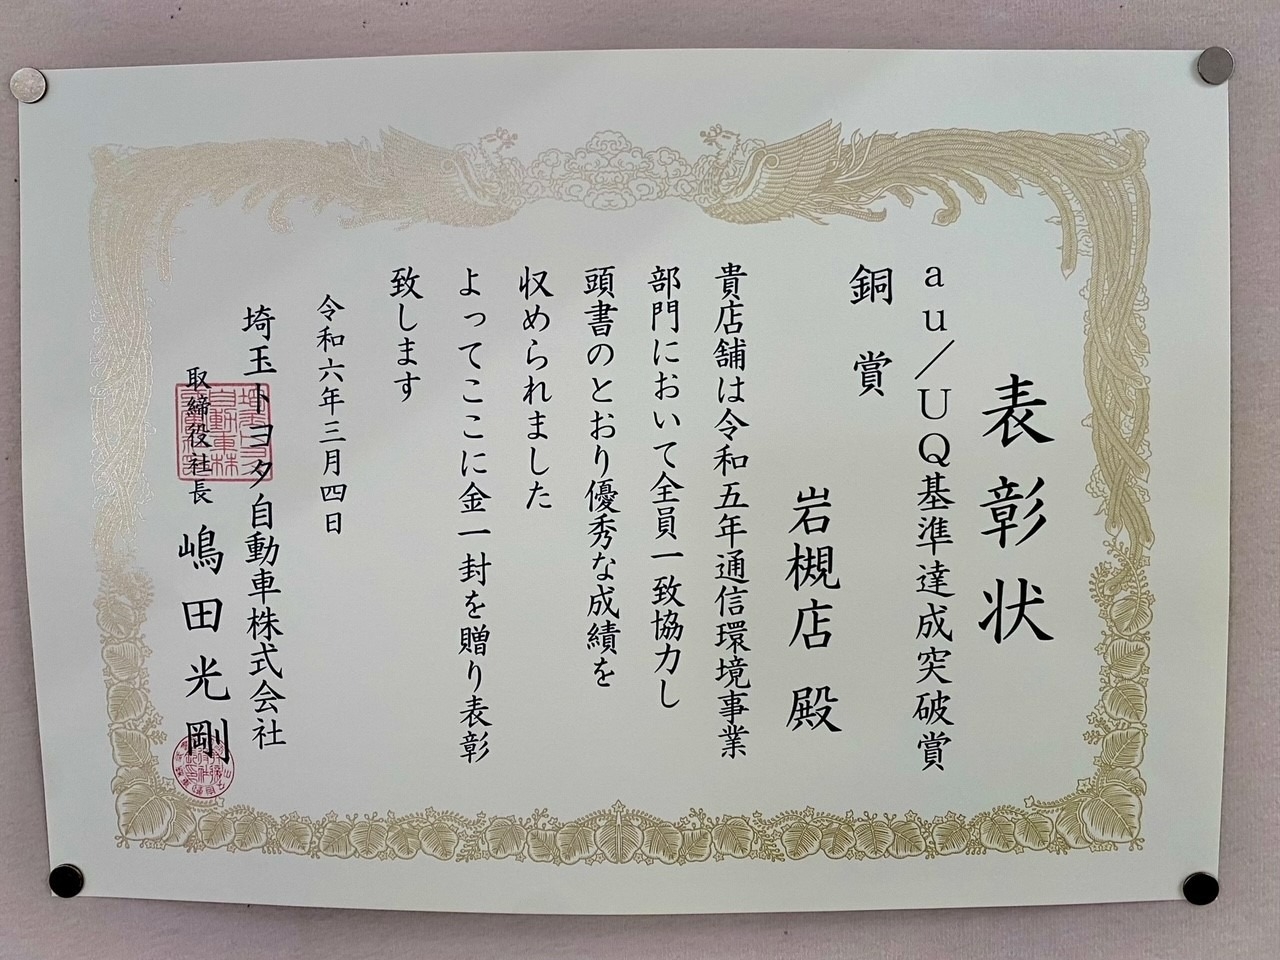 表彰状
au／UQ基準達成突破賞
銅賞
岩槻店 殿
貴店舗は令和五年通信環境事業
部門において全員一致協力し
頭書のとおり優秀な成績を
収められました
よってここに金一封を贈り表彰
致します
令和六年三月四日
埼玉トヨタ自動車株式会社
取締役社長 嶋田光剛